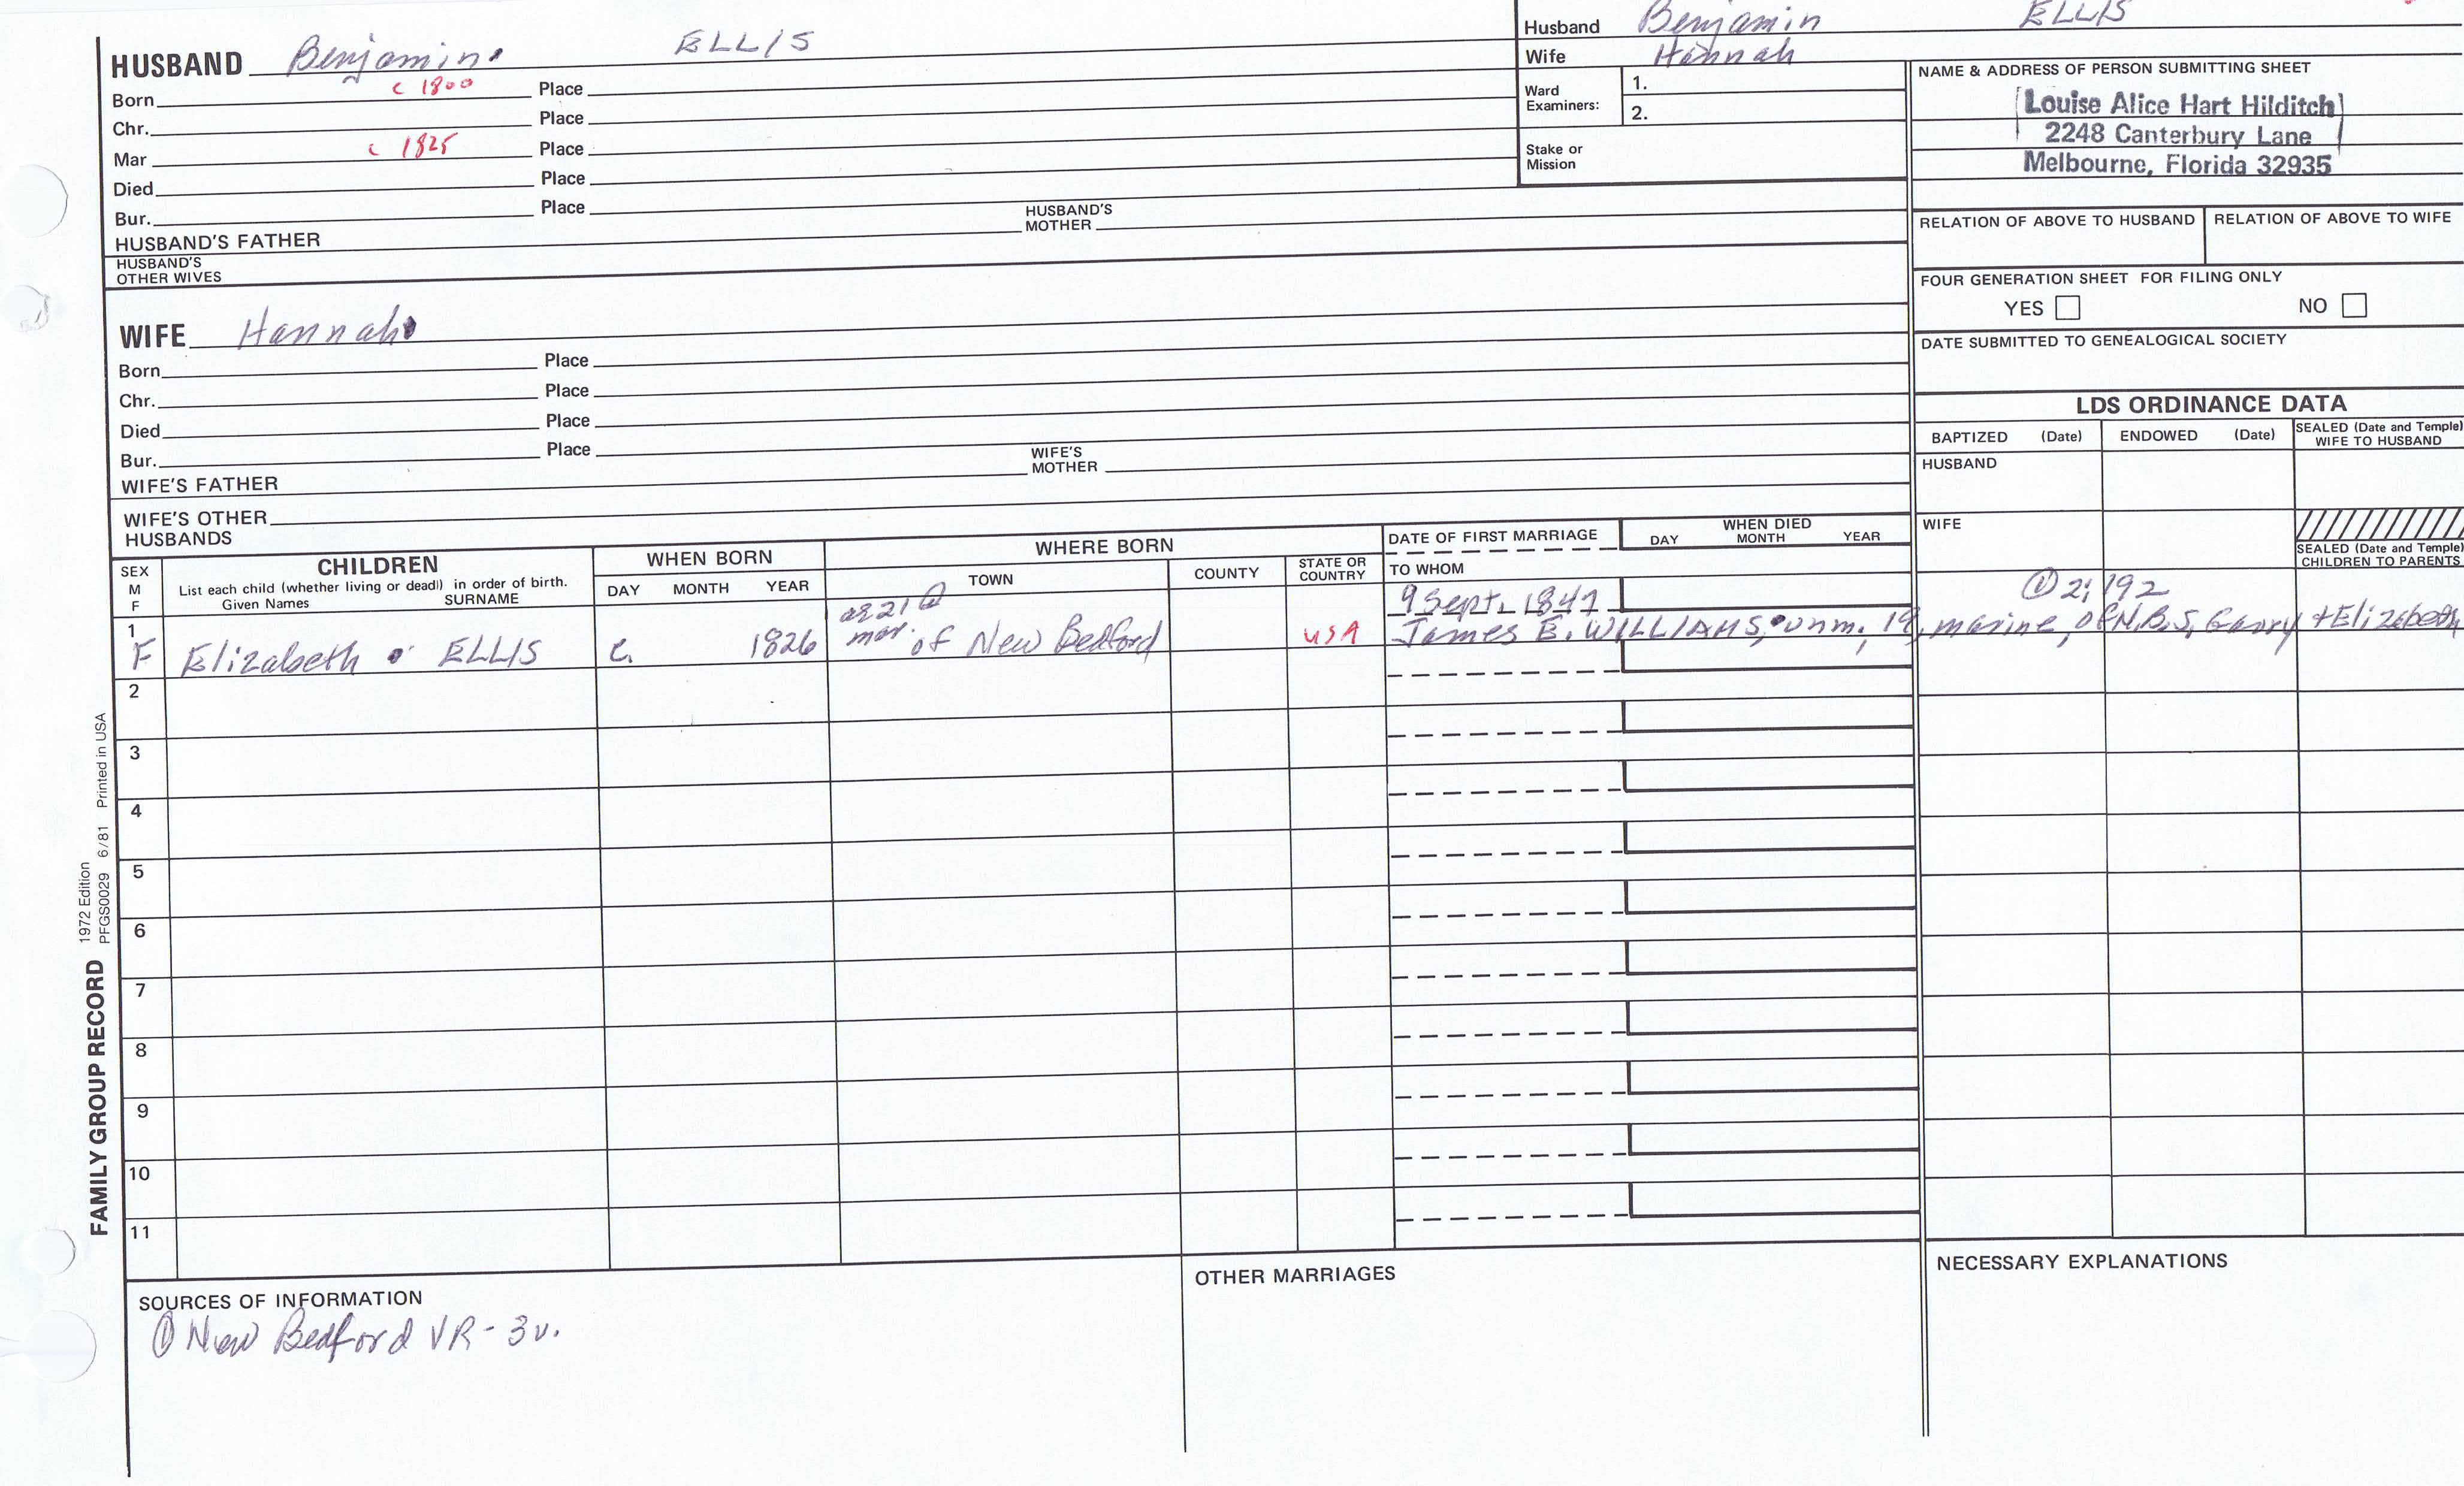 HUSBAND Benjamin ELLIS
Born c 1800 Place
Chr. Place
Mar c 1825 Place
Died Place
Bur. Place
HUSBAND'S FATHER HUSBAND'S MOTHER
HUSBAND'S OTHER WIVES
WIFE Hannah
Born Place
Chr. Place
Died Place
Bur. Place
WIFE'S FATHER WIFE'S MOTHER
WIFE'S OTHER HUSBANDS
Husband Benjamin ELLIS
Wife Hannah
Ward Examiners: 1.
2.
Stake or Mission
NAME & ADDRESS OF PERSON SUBMITTING SHEET
Louise Alice Hart Hilditch
2248 Canterbury Lane
Melbourne, Florida 32935
RELATION OF ABOVE TO HUSBAND RELATION OF ABOVE TO WIFE
FOUR GENERATION SHEET FOR FILING ONLY
YES NO
DATE SUBMITTED TO GENEALOGICAL SOCIETY
LDS ORDINANCE DATA
BAPTIZED (Date) ENDOWED (Date) SEALED (Date and Temple) WIFE TO HUSBAND
HUSBAND
WIFE
SEALED (Date and Temple) CHILDREN TO PARENTS
SEX M F
CHILDREN
List each child (whether living or dead) in order of birth.
Given Names SURNAME
WHEN BORN
DAY MONTH YEAR
WHERE BORN
TOWN COUNTY STATE OR COUNTRY
DATE OF FIRST MARRIAGE
TO WHOM
WHEN DIED
DAY MONTH YEAR
1 F Elizabeth ELLIS c. 1826 ae 21 @ mar. of New Bedford USA 9 Sept. 1847 ① 2; 192
James E. WILLIAMS, unm., 19, marine, of N.B. S, + Elizabeth
2
3
4
5
6
7
8
9
10
11
SOURCES OF INFORMATION
① New Bedford VR - 3v.
OTHER MARRIAGES
NECESSARY EXPLANATIONS
FAMILY GROUP RECORD 1972 Edition
PFGS0029 6/81 Printed in USA